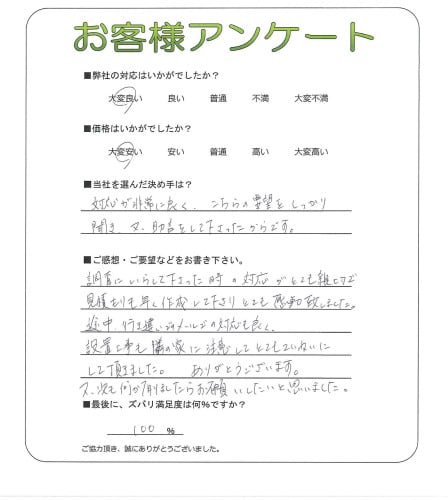 お客様アンケート
■弊社の対応はいかがでしたか？
大変良い 良い 普通 不満 大変不満
■価格はいかがでしたか？
大変安い 安い 普通 高い 大変高い
■当社を選んだ決め手は？
対応が非常に良く、こちらの要望をしっかり
聞き、又、助言をして下さったからです。
■ご感想・ご要望などをお書き下さい。
調査にいらして下さった時の対応がとても親切で
見積もりも早く作成して下さりとても感謝致しました。
途中、行き違いのメールの対応も良く、
設置工事も隣の家に注意してとてもていねいに
して頂きました。 ありがとうございます。
又、次も何か有りましたらお願いしたいと思いました。
■最後に、ズバリ満足度は何%ですか？
100 %
ご協力頂き、誠にありがとうございました。